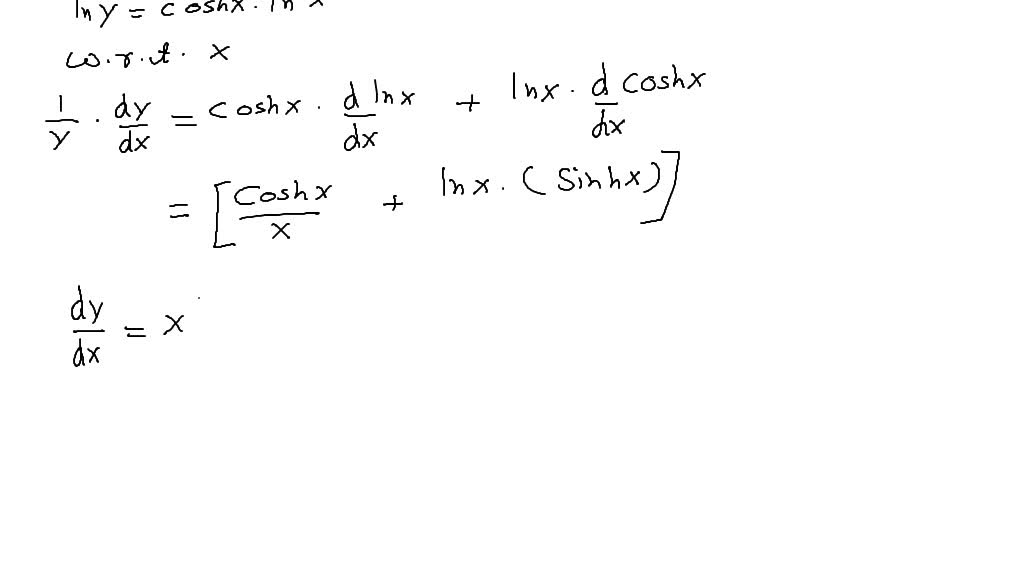 ln y = coshx . ln x
w.r.t. x
1/y . dy/dx = coshx . d/dx lnx + lnx . d/dx coshx
= [coshx/x + lnx . (sinhx)]
dy/dx = x